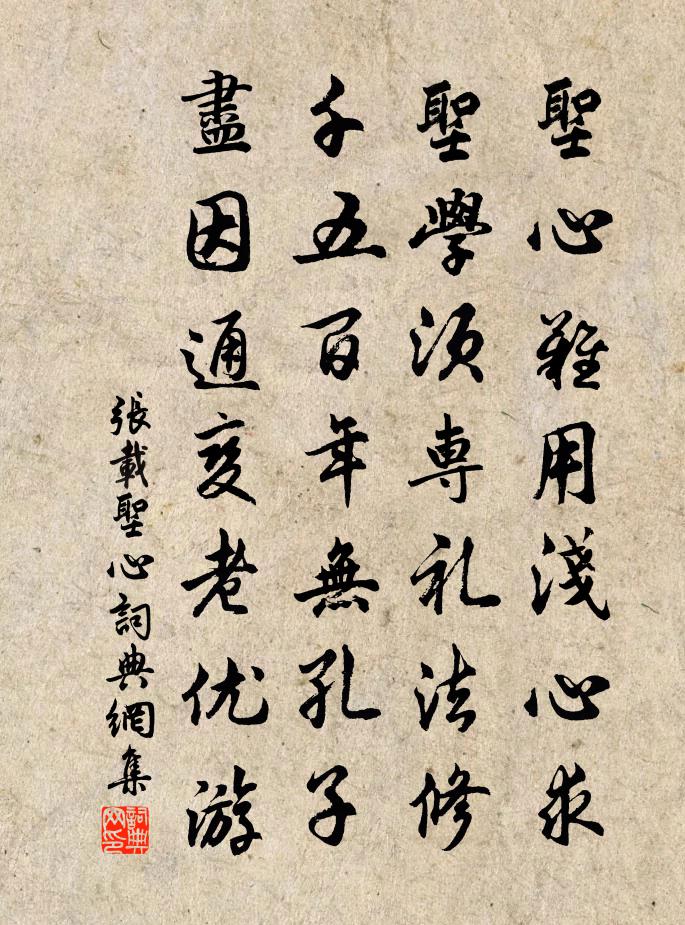 聖心難用淺心求
聖學須專礼法修
千五百年無孔子
盡因通变老优游
張載聖心詞典網集
詞典网印